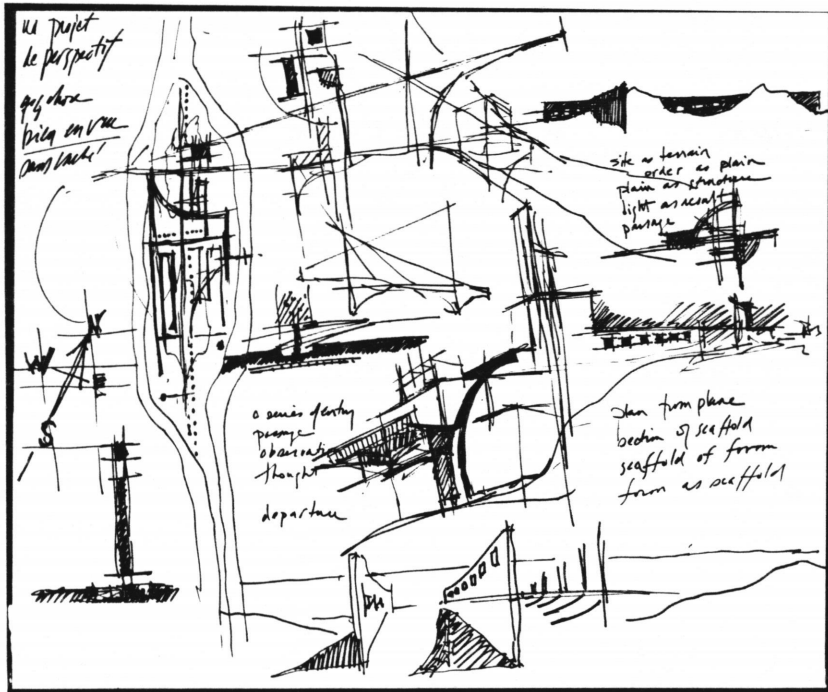 un projet
de perspectif
bien en vue
site as terrain
order as plain
plain as structure
light as result
passage
N
W
S
a series of entry
passage
observation
thought
departure
plan from plane
section of scaffold
scaffold of form
form as scaffold